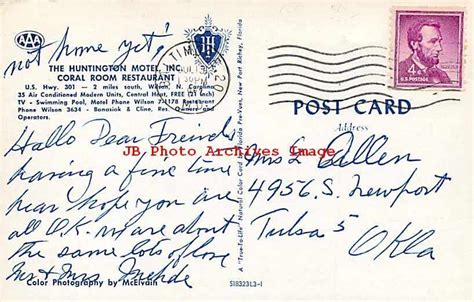 AAA
not home yet!
THE HUNTINGTON MOTEL, INC.
CORAL ROOM RESTAURANT
U.S. Hwy. 301 - 2 miles south, Wilson, N. Carolina
35 Air Conditioned Modern Units, Central Heat, FREE (21 inch)
TV - Swimming Pool, Motel Phone Wilson 7-1178 Restaurant
Phone Wilson 3634 - Bonasiok & Cline, Res.
Operators.
H
POST CARD
Address
4¢
U.S. POSTAGE
Hallo Dear Friends
having a fine time
hear hope you are
all O.K. we are about
the same lots of love
Mr & Mrs
Mrs L Allen
4956 S. Newport
Tulsa 5
Okla
JB Photo Archives Image
Color Photography by McElvain
A "True-To-Life" Natural Color Card by Florida Pre-Vues, New Port Richey, Florida
S18323L3-1